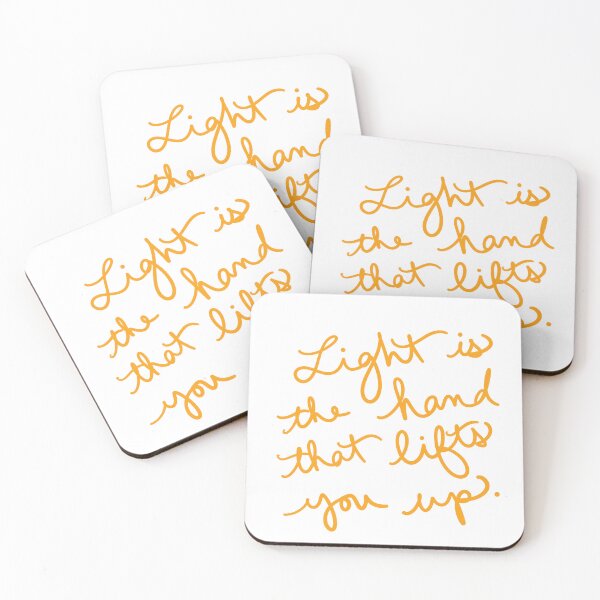 Light is
the hand
Light is
the hand
that lifts
Light is
the hand
that lifts
you
Light is
the hand
that lifts
you up.